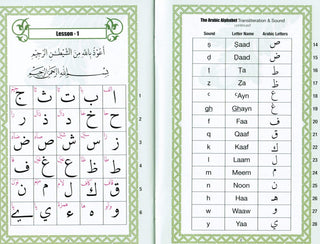 Lesson - 1
أعوذ بالله من الشيطن الرجيم
بسم الله الرحمن الرحيم
ا ب ت ث ج 1
ح خ د ذ ر 2
ز س ش ص ض 3
ط ظ ع غ ف 4
ق ك ل م ن 5
و ه ء ي ے 6
The Arabic Alphabet Transliteration & Sound
Sound Letter Name Arabic Letters
ṣ Ṣaad ص 14
ḍ Ḍaad ض 15
ṭ Ṭa ط 16
ẓ Ẓa ظ 17
ʿ ʿAyn ع 18
gh Ghayn غ 19
f Faa ف 20
q Qaaf ق 21
k Kaaf ك 22
l Laam ل 23
m Meem م 24
n Noon ن 25
h Haa ه 26
w Waaw و 27
y Yaa ي 28